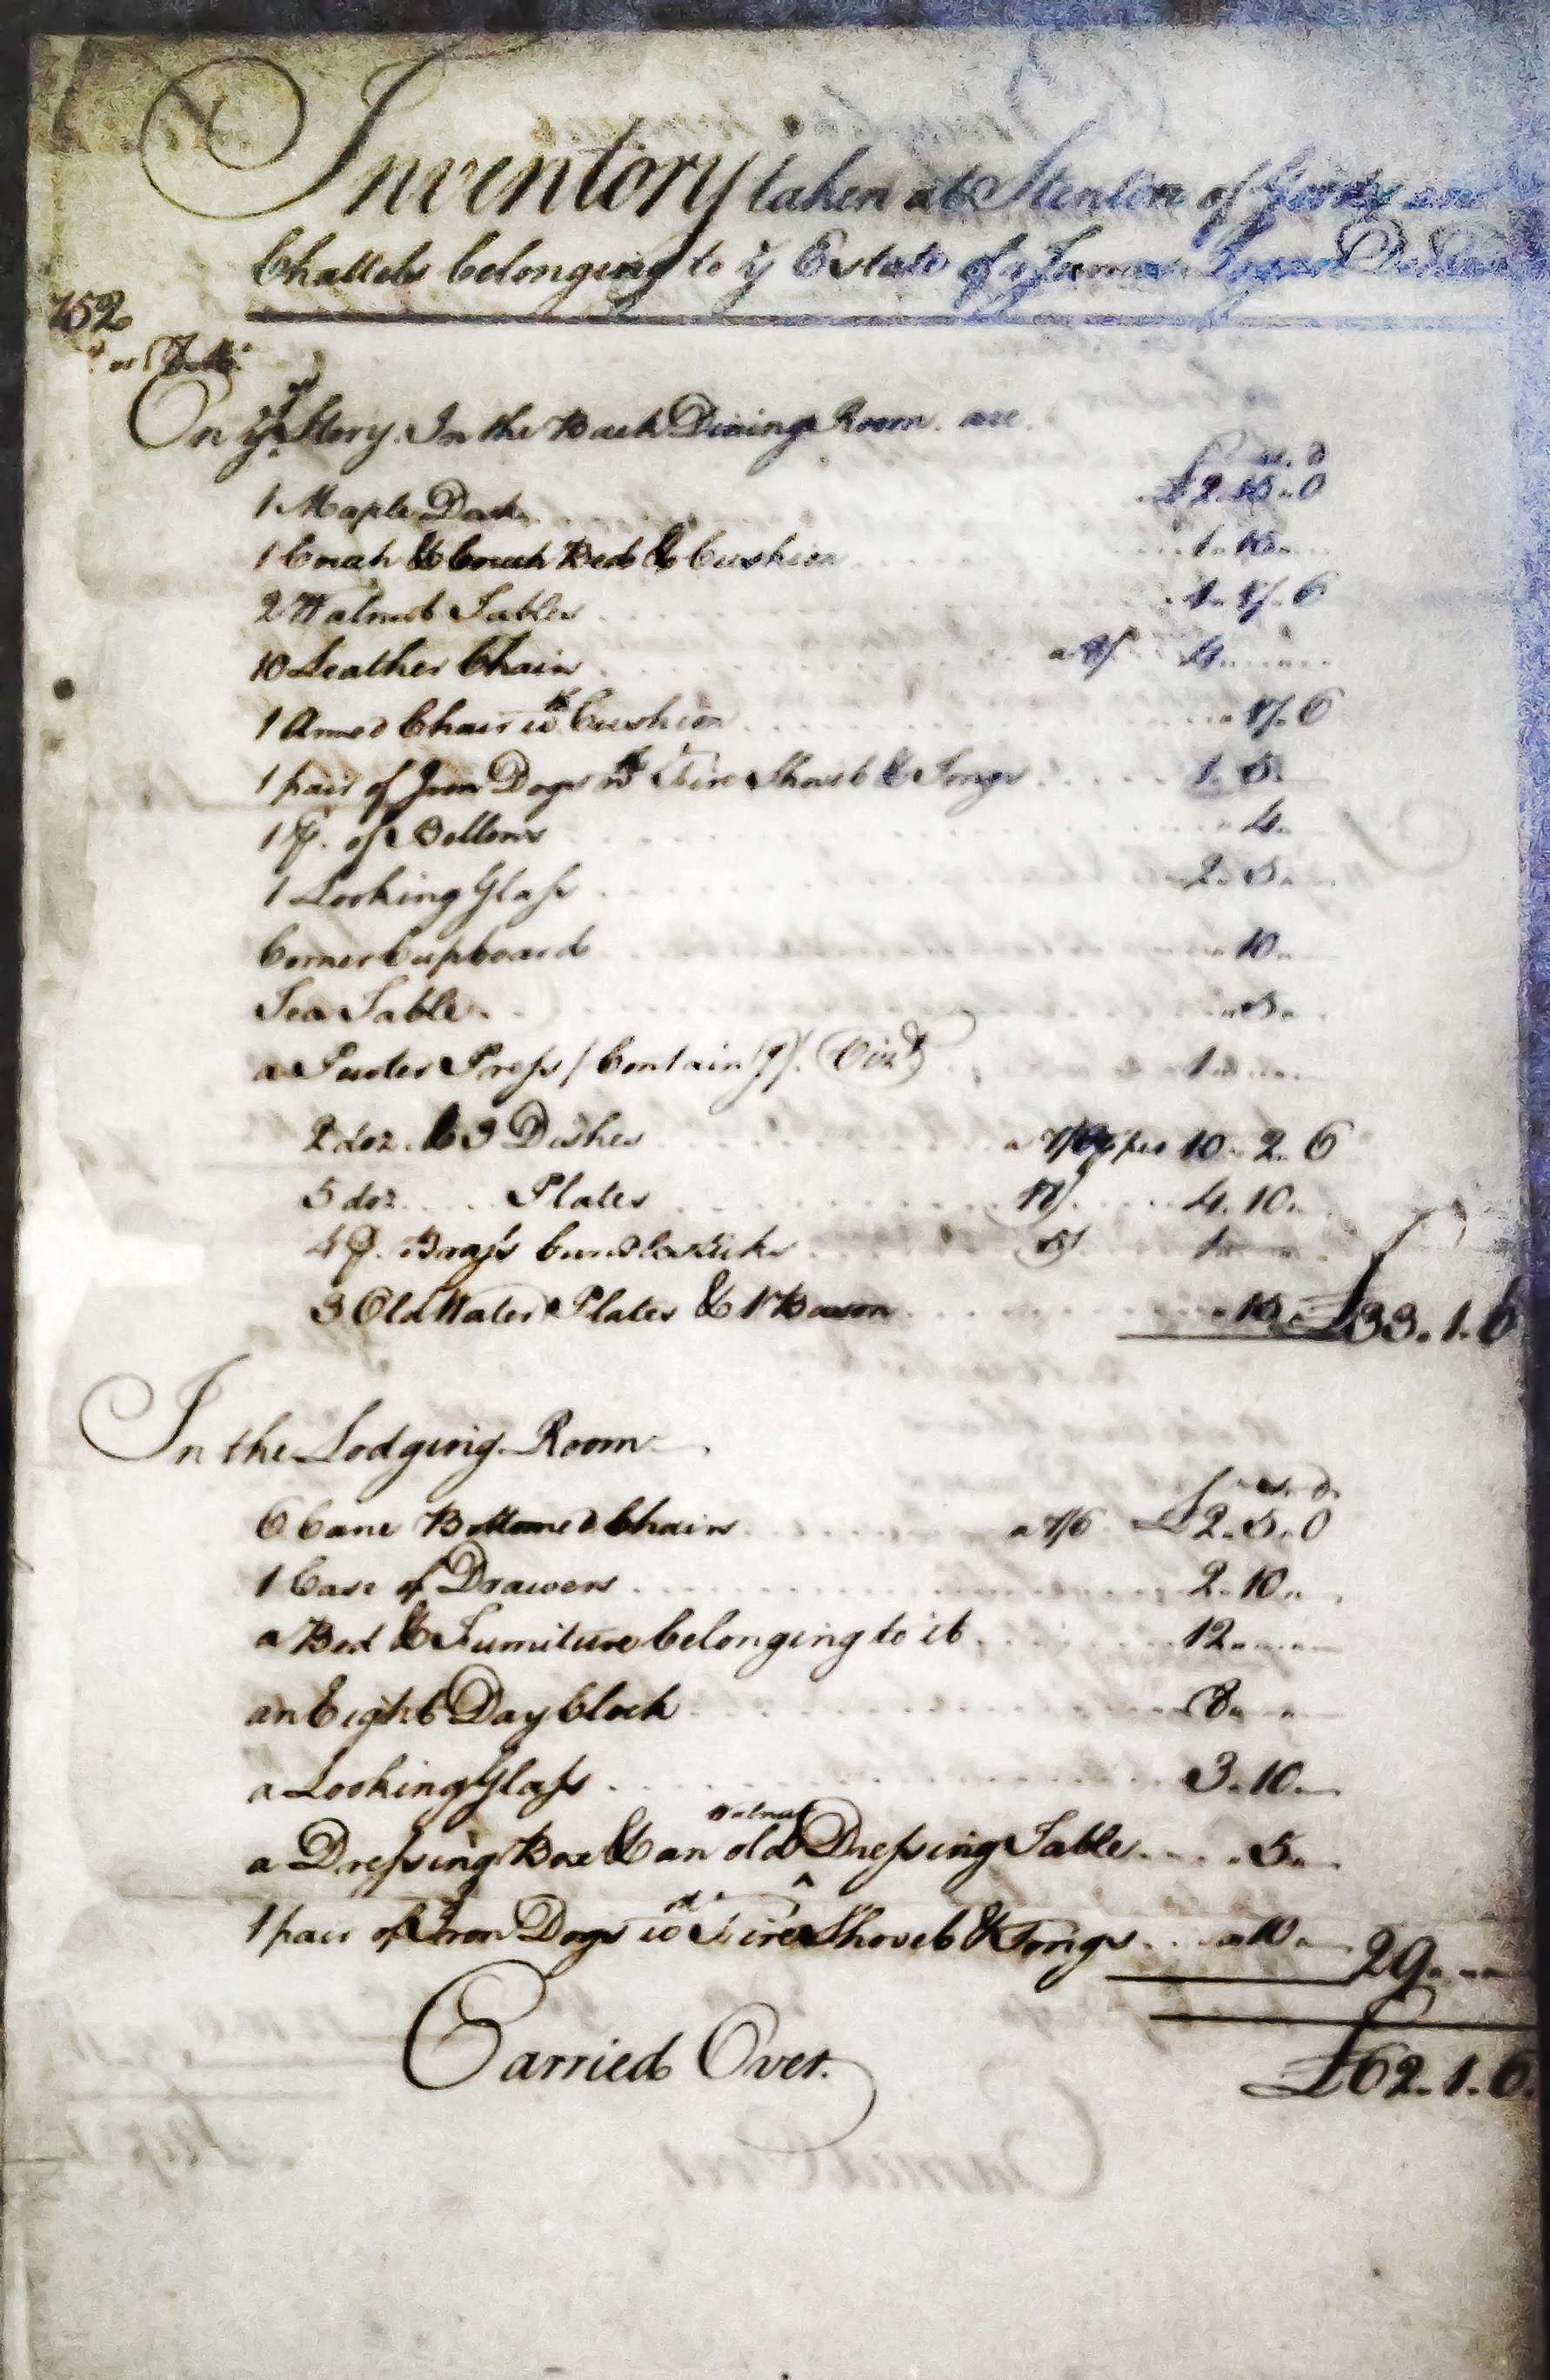 Inventory taken at Stenton of Goods and
Chattels belonging to ye Estate of James Logan
752
On ye Story In the Back Dining Room are
s. d
1 Maple Desk £2. 15. 0
1 Couch & Couch Bed & Cushion 1. 10
2 Walnut Tables 1. 17. 6
10 Leather Chairs 4
1 Armed Chair wth Cushion 17. 6
1 pair of Iron Dogs wth Fire Shovel & Tongs 1. 5.
1 p. of Bellows 4.
1 Looking Glaſs 2. 5
Corner Cupboard 10
Tea Table 5
a Pewter Preſs / Contain'g / Vizt 1
2 doz. & 3 Dishes a 7/6 pr 10. 2. 6
5 doz Plates 4. 10
4 p. Braſs Candlesticks 5/ 1
3 Old Water Plates & 1 Bason 15 £33. 1. 6
In the Lodging Room
£ s. d
6 Cane Bottomed Chairs a 7/6 £2. 5. 0
1 Case of Drawers 2. 10
a Bed & Furniture belonging to it 12
an Eight Day Clock 8
a Looking Glaſs 3. 10
Walnut
a Dreſsing Box & an old ^ Dreſsing Table 5
1 pair of Iron Dogs wth Fire Shovel & Tongs 10 29
Carried Over. £62. 1. 6.